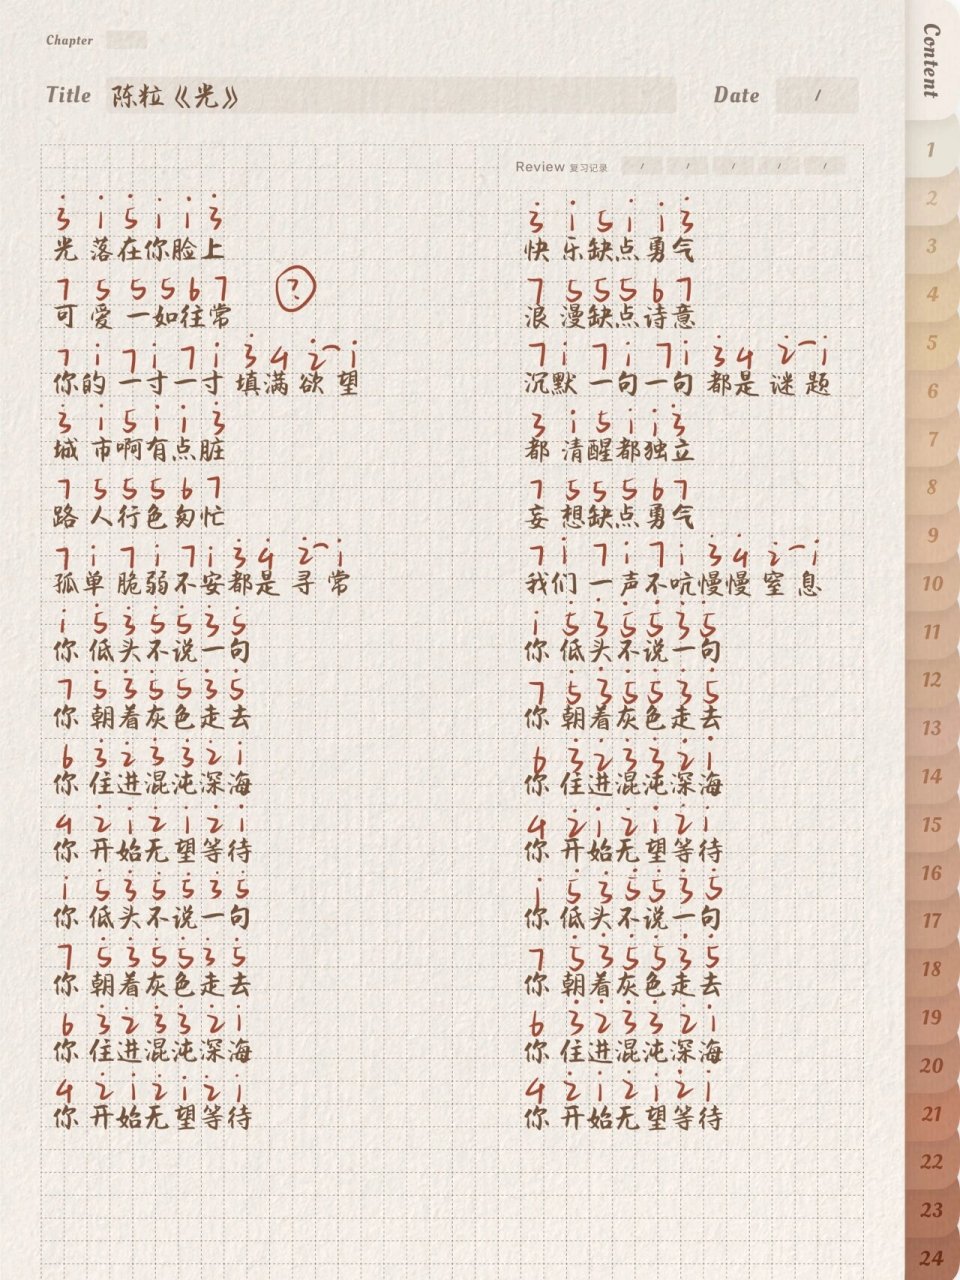 Chapter
Title 陈粒《光》 Date /
Content
Review 复习记录 / / / / /
3 1 5 1 1 3
光落在你脸上
7 5 5 5 6 7 ?
可爱一如往常
7 1 7 1 7 1 3 4 2 1
你的一寸一寸填满欲望
3 1 5 1 1 3
城市啊有点脏
7 5 5 5 6 7
路人行色匆忙
7 1 7 1 7 1 3 4 2 1
孤单脆弱不安都是寻常
1 5 3 5 5 3 5
你低头不说一句
7 5 3 5 5 3 5
你朝着灰色走去
6 3 2 3 3 2 1
你住进混沌深海
4 2 1 2 1 2 1
你开始无望等待
1 5 3 5 5 3 5
你低头不说一句
7 5 3 5 5 3 5
你朝着灰色走去
6 3 2 3 3 2 1
你住进混沌深海
4 2 1 2 1 2 1
你开始无望等待
3 1 5 1 1 3
快乐缺点勇气
7 5 5 5 6 7
浪漫缺点诗意
7 1 7 1 7 1 3 4 2 1
沉默一句一句都是谜题
3 1 5 1 1 3
都清醒都独立
7 5 5 5 6 7
妄想缺点勇气
7 1 7 1 7 1 3 4 2 1
我们一声不吭慢慢窒息
1 5 3 5 5 3 5
你低头不说一句
7 5 3 5 5 3 5
你朝着灰色走去
6 3 2 3 3 2 1
你住进混沌深海
4 2 1 2 1 2 1
你开始无望等待
1 5 3 5 5 3 5
你低头不说一句
7 5 3 5 5 3 5
你朝着灰色走去
6 3 2 3 3 2 1
你住进混沌深海
4 2 1 2 1 2 1
你开始无望等待
1
2
3
4
5
6
7
8
9
10
11
12
13
14
15
16
17
18
19
20
21
22
23
24